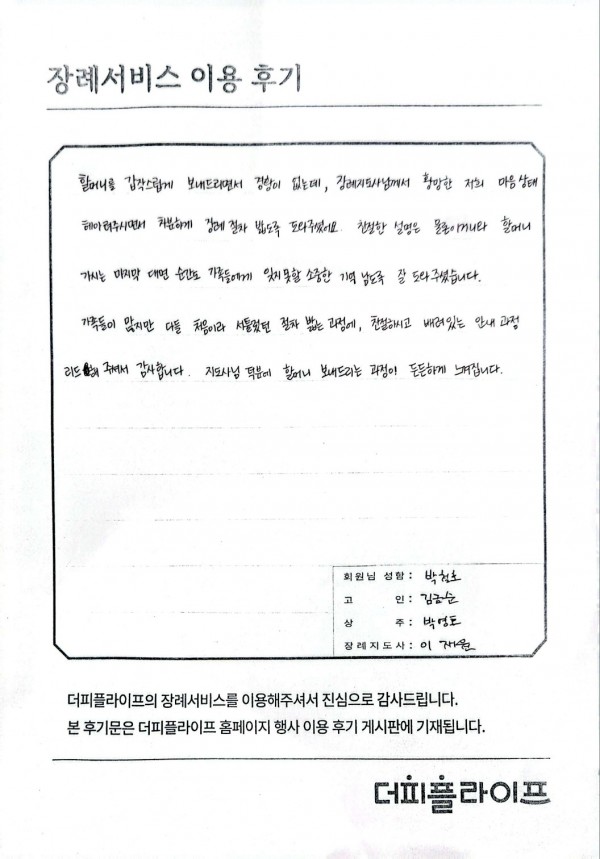 장례서비스 이용 후기
할머니를 갑작스럽게 보내드리면서 경황이 없는데, 장례지도사님께서 황망한 저희 마음상태
헤아려주시면서 차분하게 장례 절차 밟도록 도와주셨어요. 친절한 설명은 물론이거니와 할머니
가시는 마지막 대면 순간도 가족들에게 잊지못할 소중한 기억 남도록 잘 도와주셨습니다.
가족들이 많지만 다들 처음이라 서툴렀던 절차 밟는 과정에, 친절하시고 배려있는 안내 과정
리드해 주셔서 감사합니다. 지도사님 덕분에 할머니 보내드리는 과정이 든든하게 느껴집니다.
회원님 성함 : 박천호
고 인 : 김금순
상 주 : 박영도
장례지도사 : 이재윤
더피플라이프의 장례서비스를 이용해주셔서 진심으로 감사드립니다.
본 후기문은 더피플라이프 홈페이지 행사 이용 후기 게시판에 기재됩니다.
더피플라이프